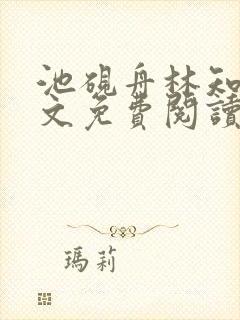 池硯舟林知
文免費閱讀
瑪莉